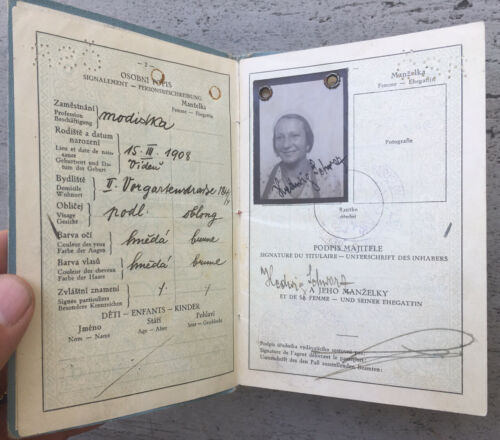 - 2 -
OSOBNÍ POPIS
SIGNALEMENT - PERSONSBESCHREIBUNG
Manželka
Femme - Ehegattin
Zaměstnání
Profession
Beschäftigung
modistka
Rodiště a datum
narození
Lieu et date de nais-
sance
Geburtsort und Da-
tum der Geburt
15. III. 1908
Vídeň
Bydliště
Domicile
Wohnort
II. Vorgartenstrasse
Obličej
Visage
Gesicht
podl. oblong
Barva očí
Couleur des yeux
Farbe der Augen
hnědá brune
Barva vlasů
Couleur des cheveux
Farbe der Haare
hnědá brune
Zvláštní znamení
Signes particuliers
Besondere Kennzeichen
DĚTI - ENFANTS - KINDER
Jméno
Nom - Name
Stáří
Age - Alter
Pohlaví
Sexe - Geschlecht
Manželka
Femme - Ehegattin
Fotografie
Razítko
úřední
PODPIS MAJITELE
SIGNATURE DU TITULAIRE - UNTERSCHRIFT DES INHABERS
Hedwig Schwarz
A JEHO MANŽELKY
ET DE SA FEMME - UND SEINER EHEGATTIN
Podpis úředníka vydávajícího cestovní pas:
Signature de l'agent délivrant le passeport:
Unterschrift des den Paß ausstellenden Beamten: